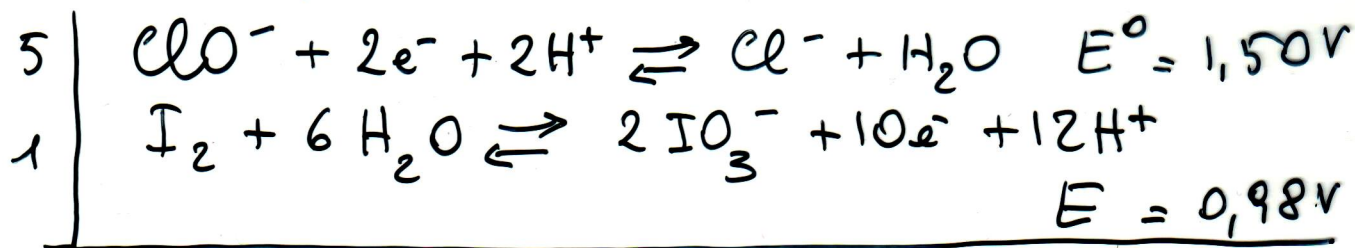 5 | ClO⁻ + 2e⁻ + 2H⁺ ⇌ Cl⁻ + H₂O E⁰ = 1,50V
1 | I₂ + 6 H₂O ⇌ 2 IO₃⁻ + 10e⁻ + 12H⁺
E = 0,98V